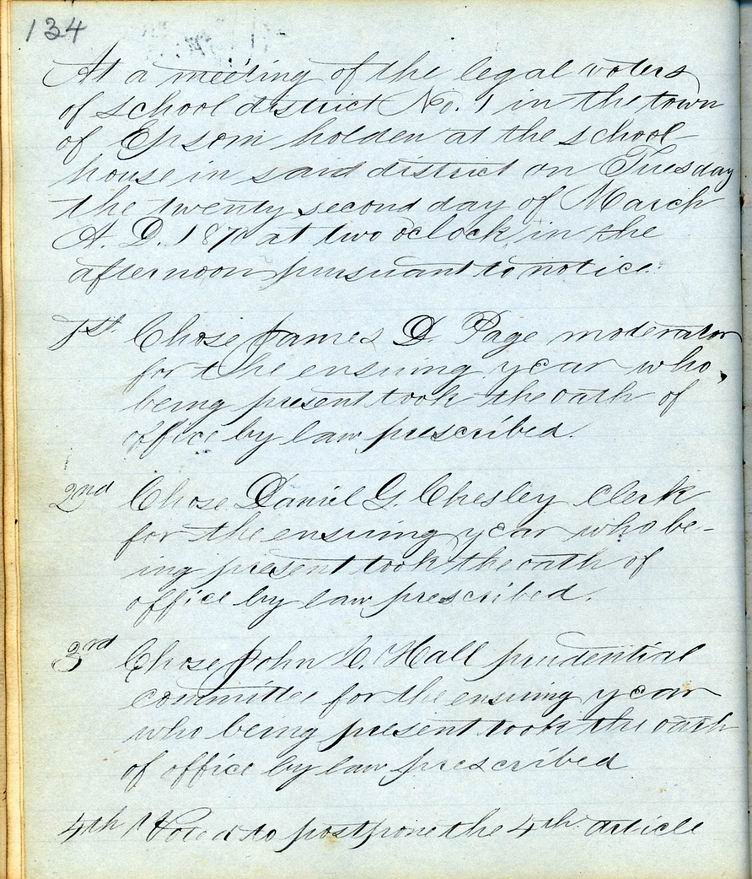 134
At a meeting of the legal voters
of school district No. 1 in the town
of Epsom holden at the school
house in said district on Tuesday
the twenty second day of March
A. D. 1870 at two oclock in the
afternoon pursuant to notice.
1st Chose James D Page moderator
for the ensuing year who,
being present took the oath of
office by law prescribed.
2nd Chose Daniel G. Chesley clerk
for the ensuing year who be-
ing present took the oath of
office by law prescribed.
3rd Chose John Hall prudential
committee for the ensuing year
who being present took the oath
of office by law prescribed
4th Voted to postpone the 4th article